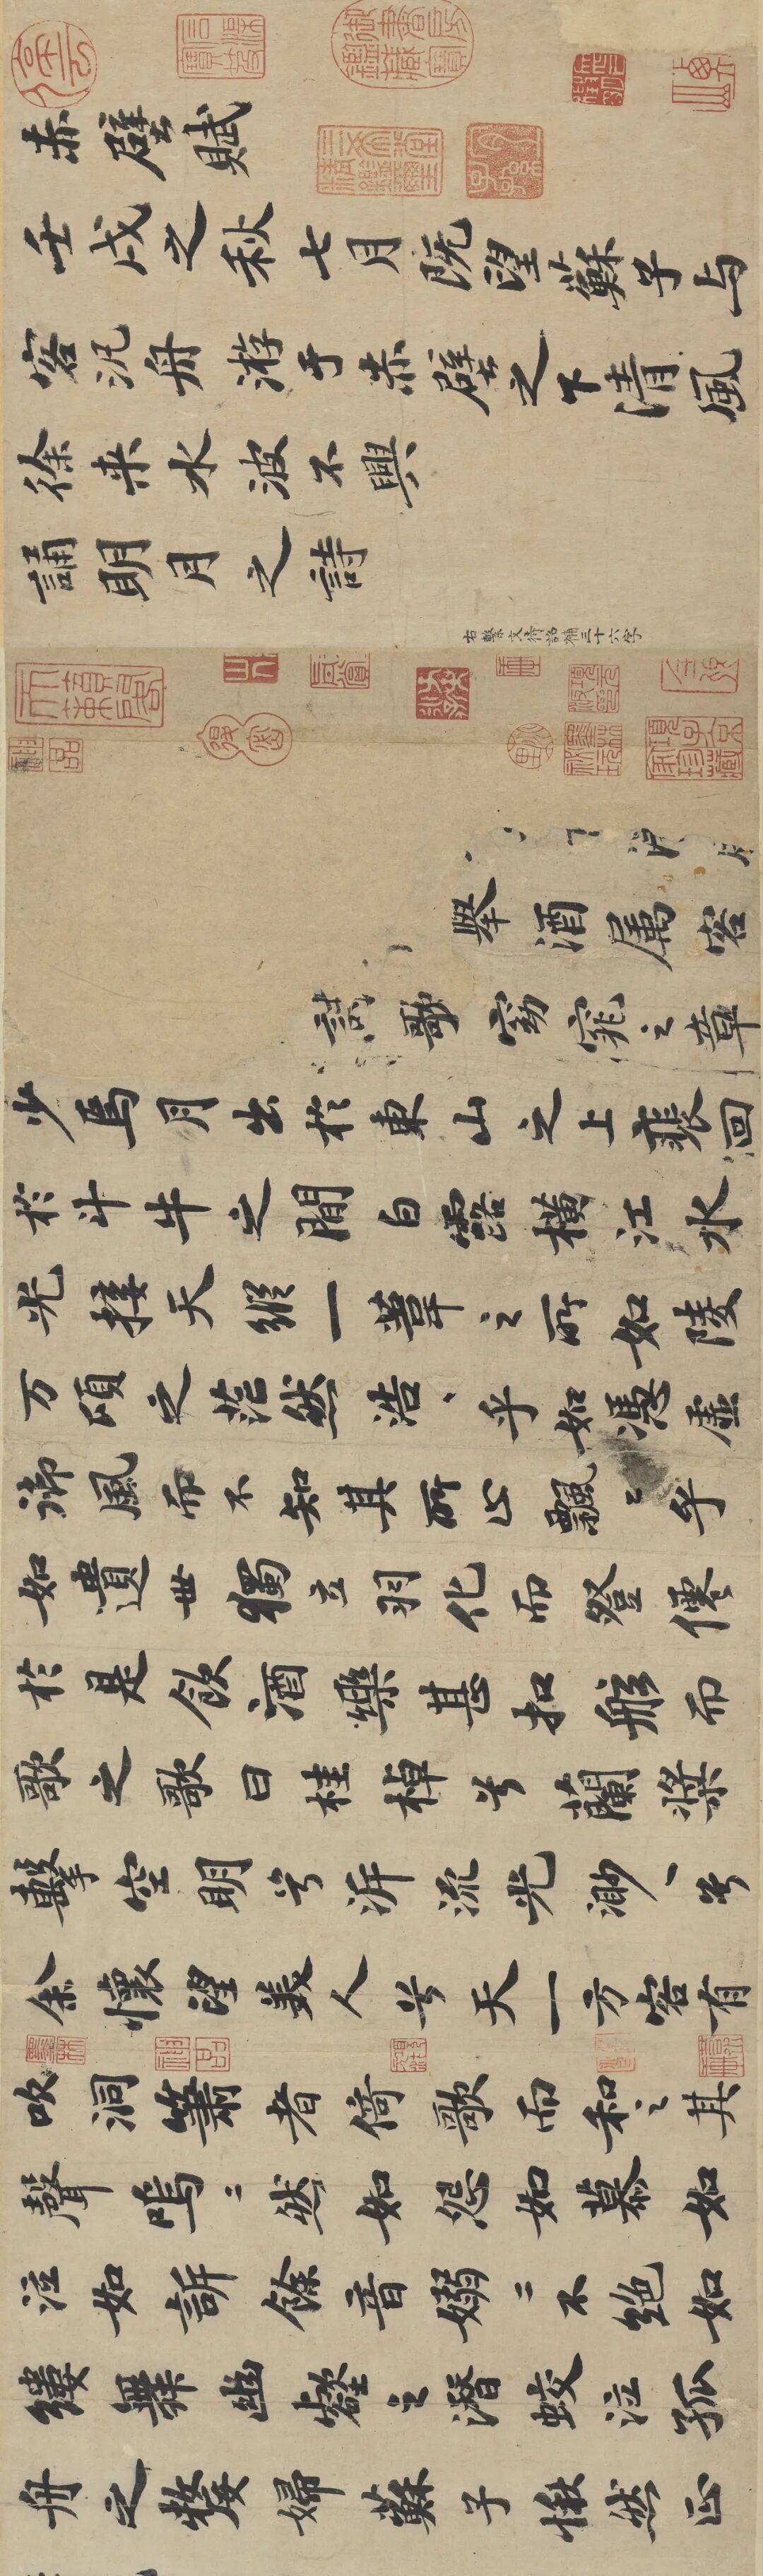 赤壁賦
壬戌之秋七月既望蘇子与
客汎舟游于赤壁之下清風
徐来水波不興
誦明月之詩
右繫文待詔補三十六字
舉酒属客
歌窈窕之章
少焉月出於東山之上裴回
於斗牛之間白露横江水
光接天縱一葦之所如陵
万頃之茫然浩、乎如馮虛
御風而不知其所止飄〻乎
如遺世獨立羽化而登僊
於是飲酒樂甚扣舷而
歌之歌曰桂棹兮蘭槳
擊空明兮泝流光渺、兮
余懷望美人兮天一方客有
吹洞簫者倚歌而和之其
聲嗚〻然如怨如慕如
泣如訴餘音嫋〻不絶如
縷舞幽壑之潜蛟泣孤
舟之嫠婦蘇子愀然正